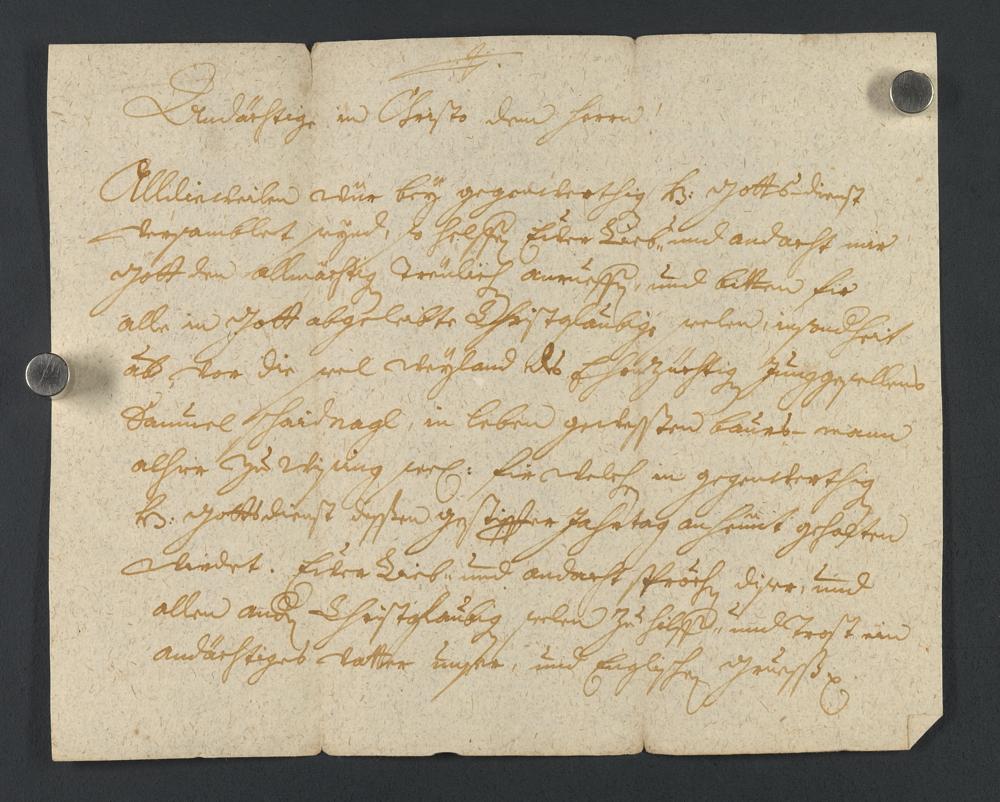 Andächtige in Christo dem Herrn!
Allldieweilen wür bey gegenwerthig H: Gottsdienst
versamblet seynd, so helffen Eüer Lieb- und andacht mir
Gott den allmächtig Treülich anrueffen, und bitten für
alle in Gott abgeleibte Christglaubige seelen, insonderheit
ab vor die seel weyland des Ehrnzüchtig Junggesellens
Samuel Schaidnagl, in leben gewessten baurs-mann
alhier zu seel: für welche in gegenwerthig
H: Gottsdienst dessen gestiffter Jahrtag anheint gehalten
wirdet. Eüer Lieb- und andacht spröche diser, und
allen andern Christglaubig seelen zu hilff- und Trost ein
andächtiges vatter unser, und Englischen Grueß